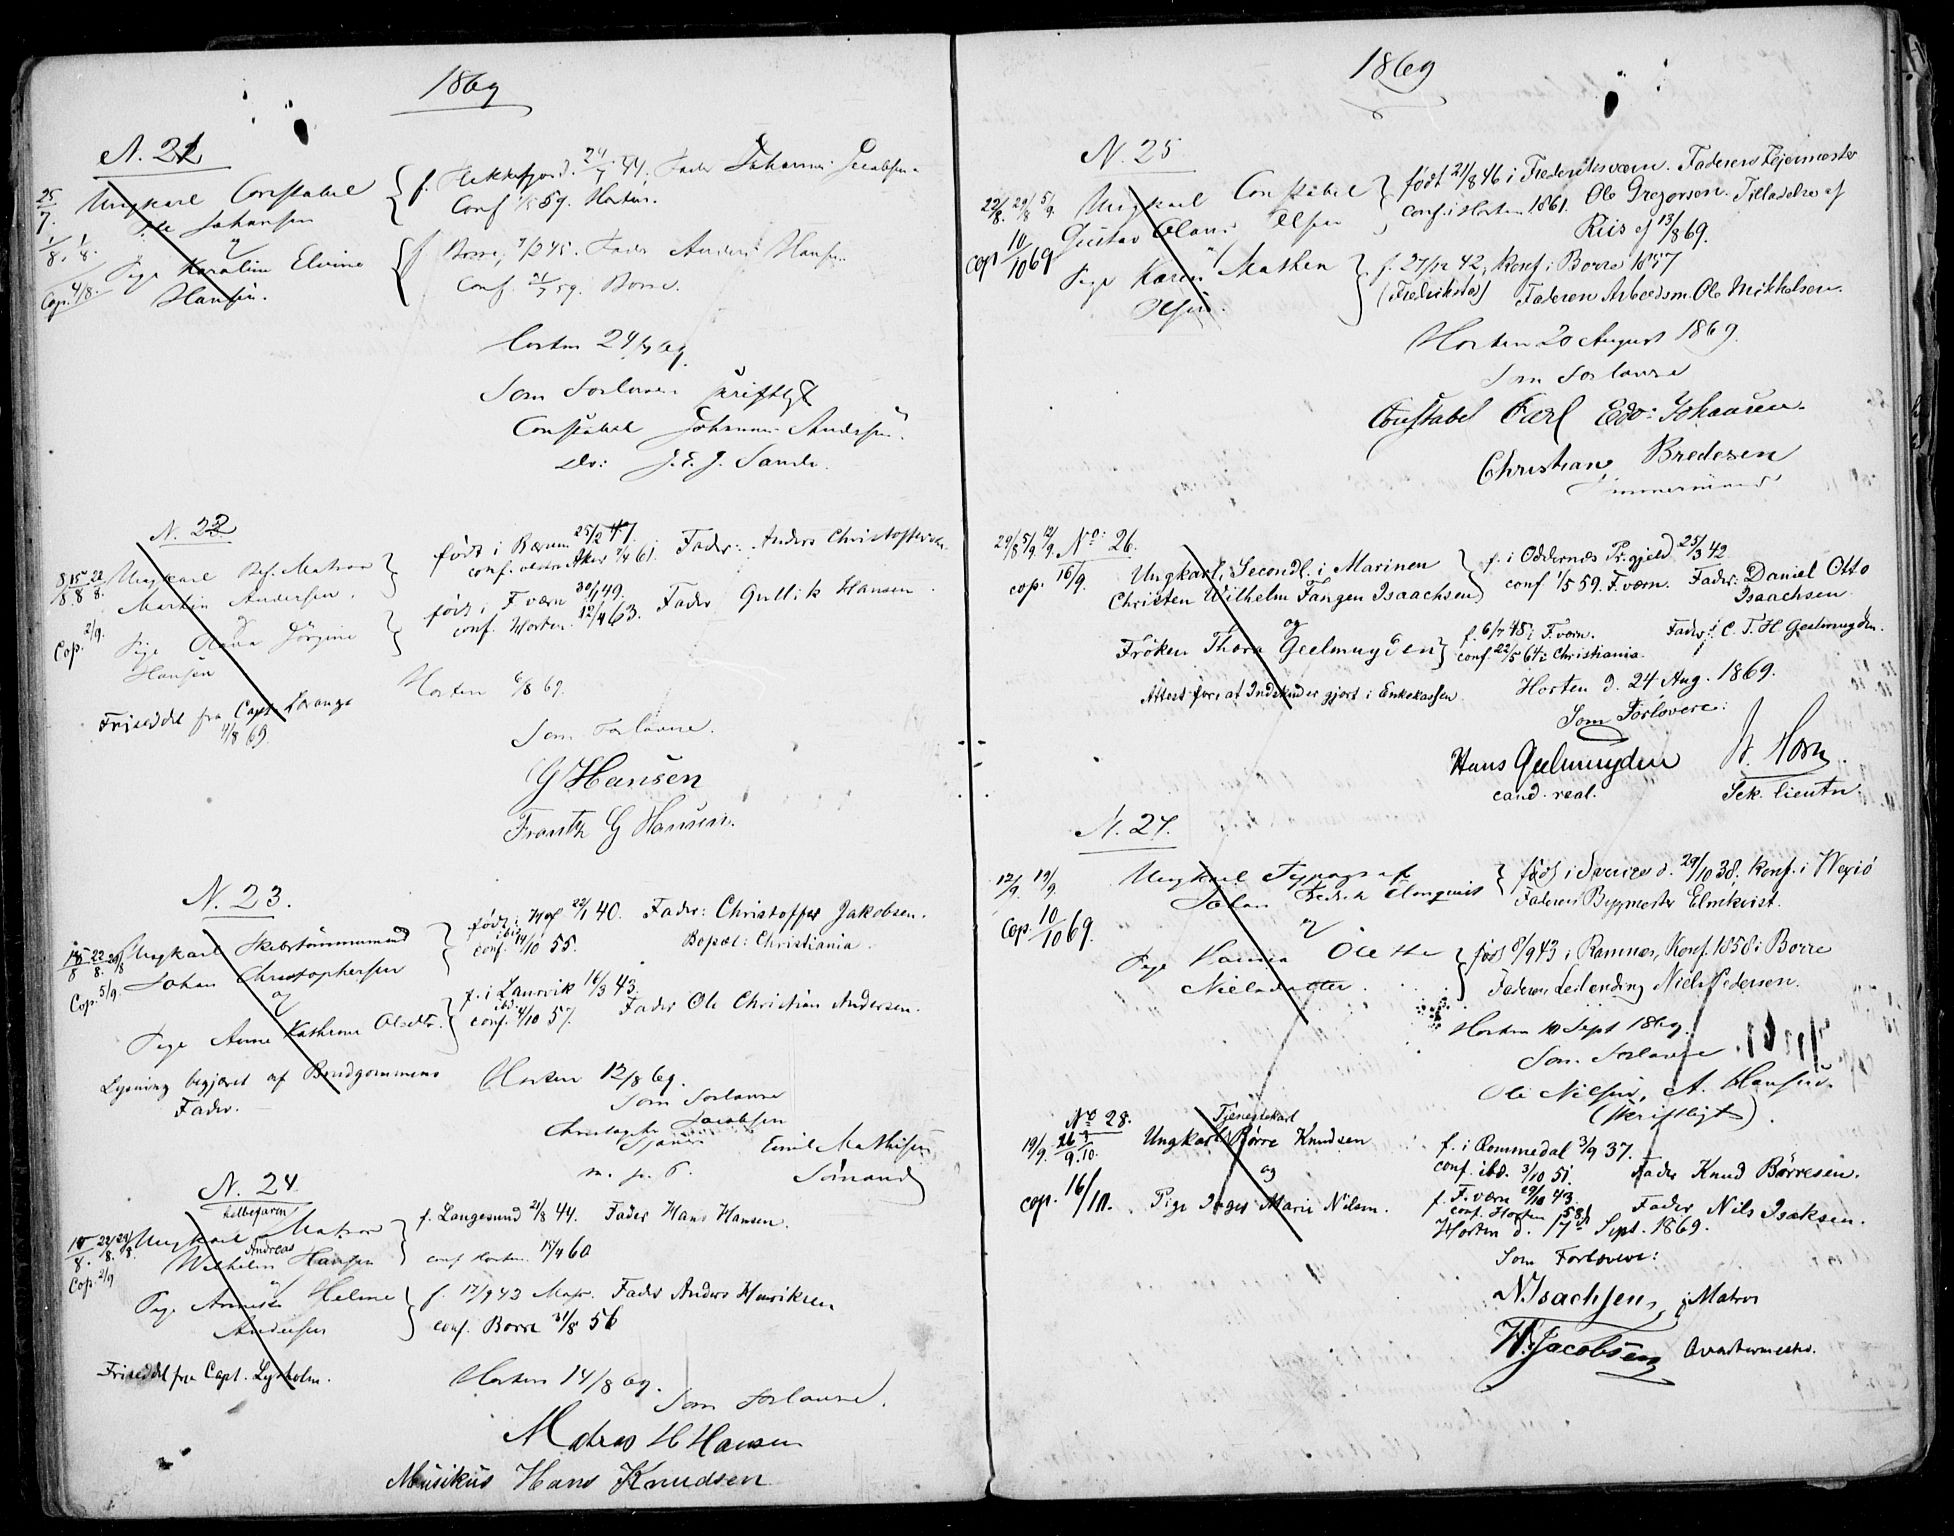 1869
N. 21
25/7. 1/8. 1/8.
Cop. 4/8.
Ungkarl Constabel
Ole Johansen
og
Pige Karoline Elvine
Hansen.
f. Flekkefjord 24/7 44. Fader Johannes Jacobsen
Conf 59. Horten.
f Borre, 45. Fader Anders Hansen
Conf. 59. Borre.
Horten 24/7 69.
Som Forlovere skriftligt
Constabel Johannes Andersen.
do: J. E. J. Sande.
N. 22
8/8 15/8 22/8.
Cop. 2/9.
Ungkarl Matros
Martin Andersen.
og
Pige Olava Jörgine
Hansen
Friseddel fra Capt.
4/8 69.
født i Bærum 25/2 41. Fader: Anders Christoffersen
conf. vestre Aker 61.
født i F.værn 30/1 49. Fader Gullik Hansen.
conf. Horten 12/4 63.
Horten 6/8 69.
Som Forlovere.
G Hansen
Frantz G Hansen.
N. 23.
15/8 22/8. 29/8
Cop. 5/9.
Ungkarl Skibstømmermand
Johan Christophersen
og
Pige Anne Kathrine Olsdtr.
Lysning begjæret af Brudgommens
Fader.
født i 22/1 40. Fader: Christoffer Jakobsen.
conf. ibid. /10 55. Bopæl: Christiania.
f. i Laurvik 16/3 43. Fader Ole Christian Andersen.
conf. ibd. 4/10 57.
Horten 12/8 69.
Som Forlovere
Christopher Jacobsen
m. p. P.
Emil Mathisen
Sömand
N. 24.
Helbefaren
15/8. 22/8. 29/8.
Cop. 2/9
Ungkarl Matros
Wilhelm Andreas Hansen
og
Pige Annette Helene
Andersen
Friseddel fra Capt. Lysholm.
f. Langesund 21/8 44. Fader Hans Hansen.
conf Horten 15/4 60
f. 17/9 43 Moss. Fader Anders Henriksen
conf. Borre 31/8 56
Horten 14/8 69.
Som Forlovere.
Matros H Hansen
Musikus Hans Knudsen
1869
N. 25
22/8. 29/8 5/9.
Cop 10/10 69
Ungkarl Constabel
Gustav Olaus Olsen
og
Pige Karen Mathea
Olsen.
født 21/8 46 i Frederiksværn. Faderen Tøiemester
conf. i Horten 1861. Ole Gregorsen. Tilladelse af
Riis af 13/8 69.
f. 27/12 42, Konf. i Borre 1857
(Fredrikstad) Faderen Arbeidsm. Ole Mikkelsen.
Horten 20 August 1869.
Som Forlovere
Constabel Carl Edv: Johansen.
Christian Bredesen
Tømmermand
29/8 5/9 12/9 No. 26.
cop. 16/9.
Ungkarl, Secondl. i Marinen
Christen Wilhelm Fangen Isaachsen
og
Fröken Thora Geelmuyden
Attest for at Indskud er gjort i Enkekassen
f. i Oddernæs Pr.gjeld 25/3 42
conf 1/5 59. F.værn. Fader: Daniel Otto
Isaachsen.
f. 6/7 45 i F.værn. Fader: C. T. H Geelmuyden.
conf 22/5 64 i Christiania.
Horten d. 24 Aug. 1869.
Som Forlovere:
Hans Geelmuyden
cand. real.
Horn.
Sek. lieutn
N. 27.
12/9. 19/9.
Cop. 10/10 69.
Ungkarl Typograf
Johan Fredrik Elmquist
og
Pige Hanna Olette
Nielsdatter.
født i Sverige d. 29/10 38. Konf. i Wexiö
Faderen Bygmester Elmkvist.
født 8/9 43 i Ramnæs, Konf. 1858 i Borre
Faderen Leilending Niels Pedersen.
Horten 10 Sept 1869.
Som Forlovere
Ole Nilsen, A. Hansen.
(skriftligt).
No 28.
19/9. 26/9. 3/10.
cop. 16/10.
Tjenestekarl
Ungkarl Börre Knudsen
og
Pige Inger Marie Nilsen.
f. i Rommedal 3/9 37.
conf. ibd. 3/10 51. Fader Knud Börresen.
f. F.værn 29/10 43.
conf. Horten 58. Fader Nils Isaksen.
Horten d. 17de Sept. 1869.
Som Forlovere:
N. Isachsen, Matros
W. Jacobsen Qvartermester.